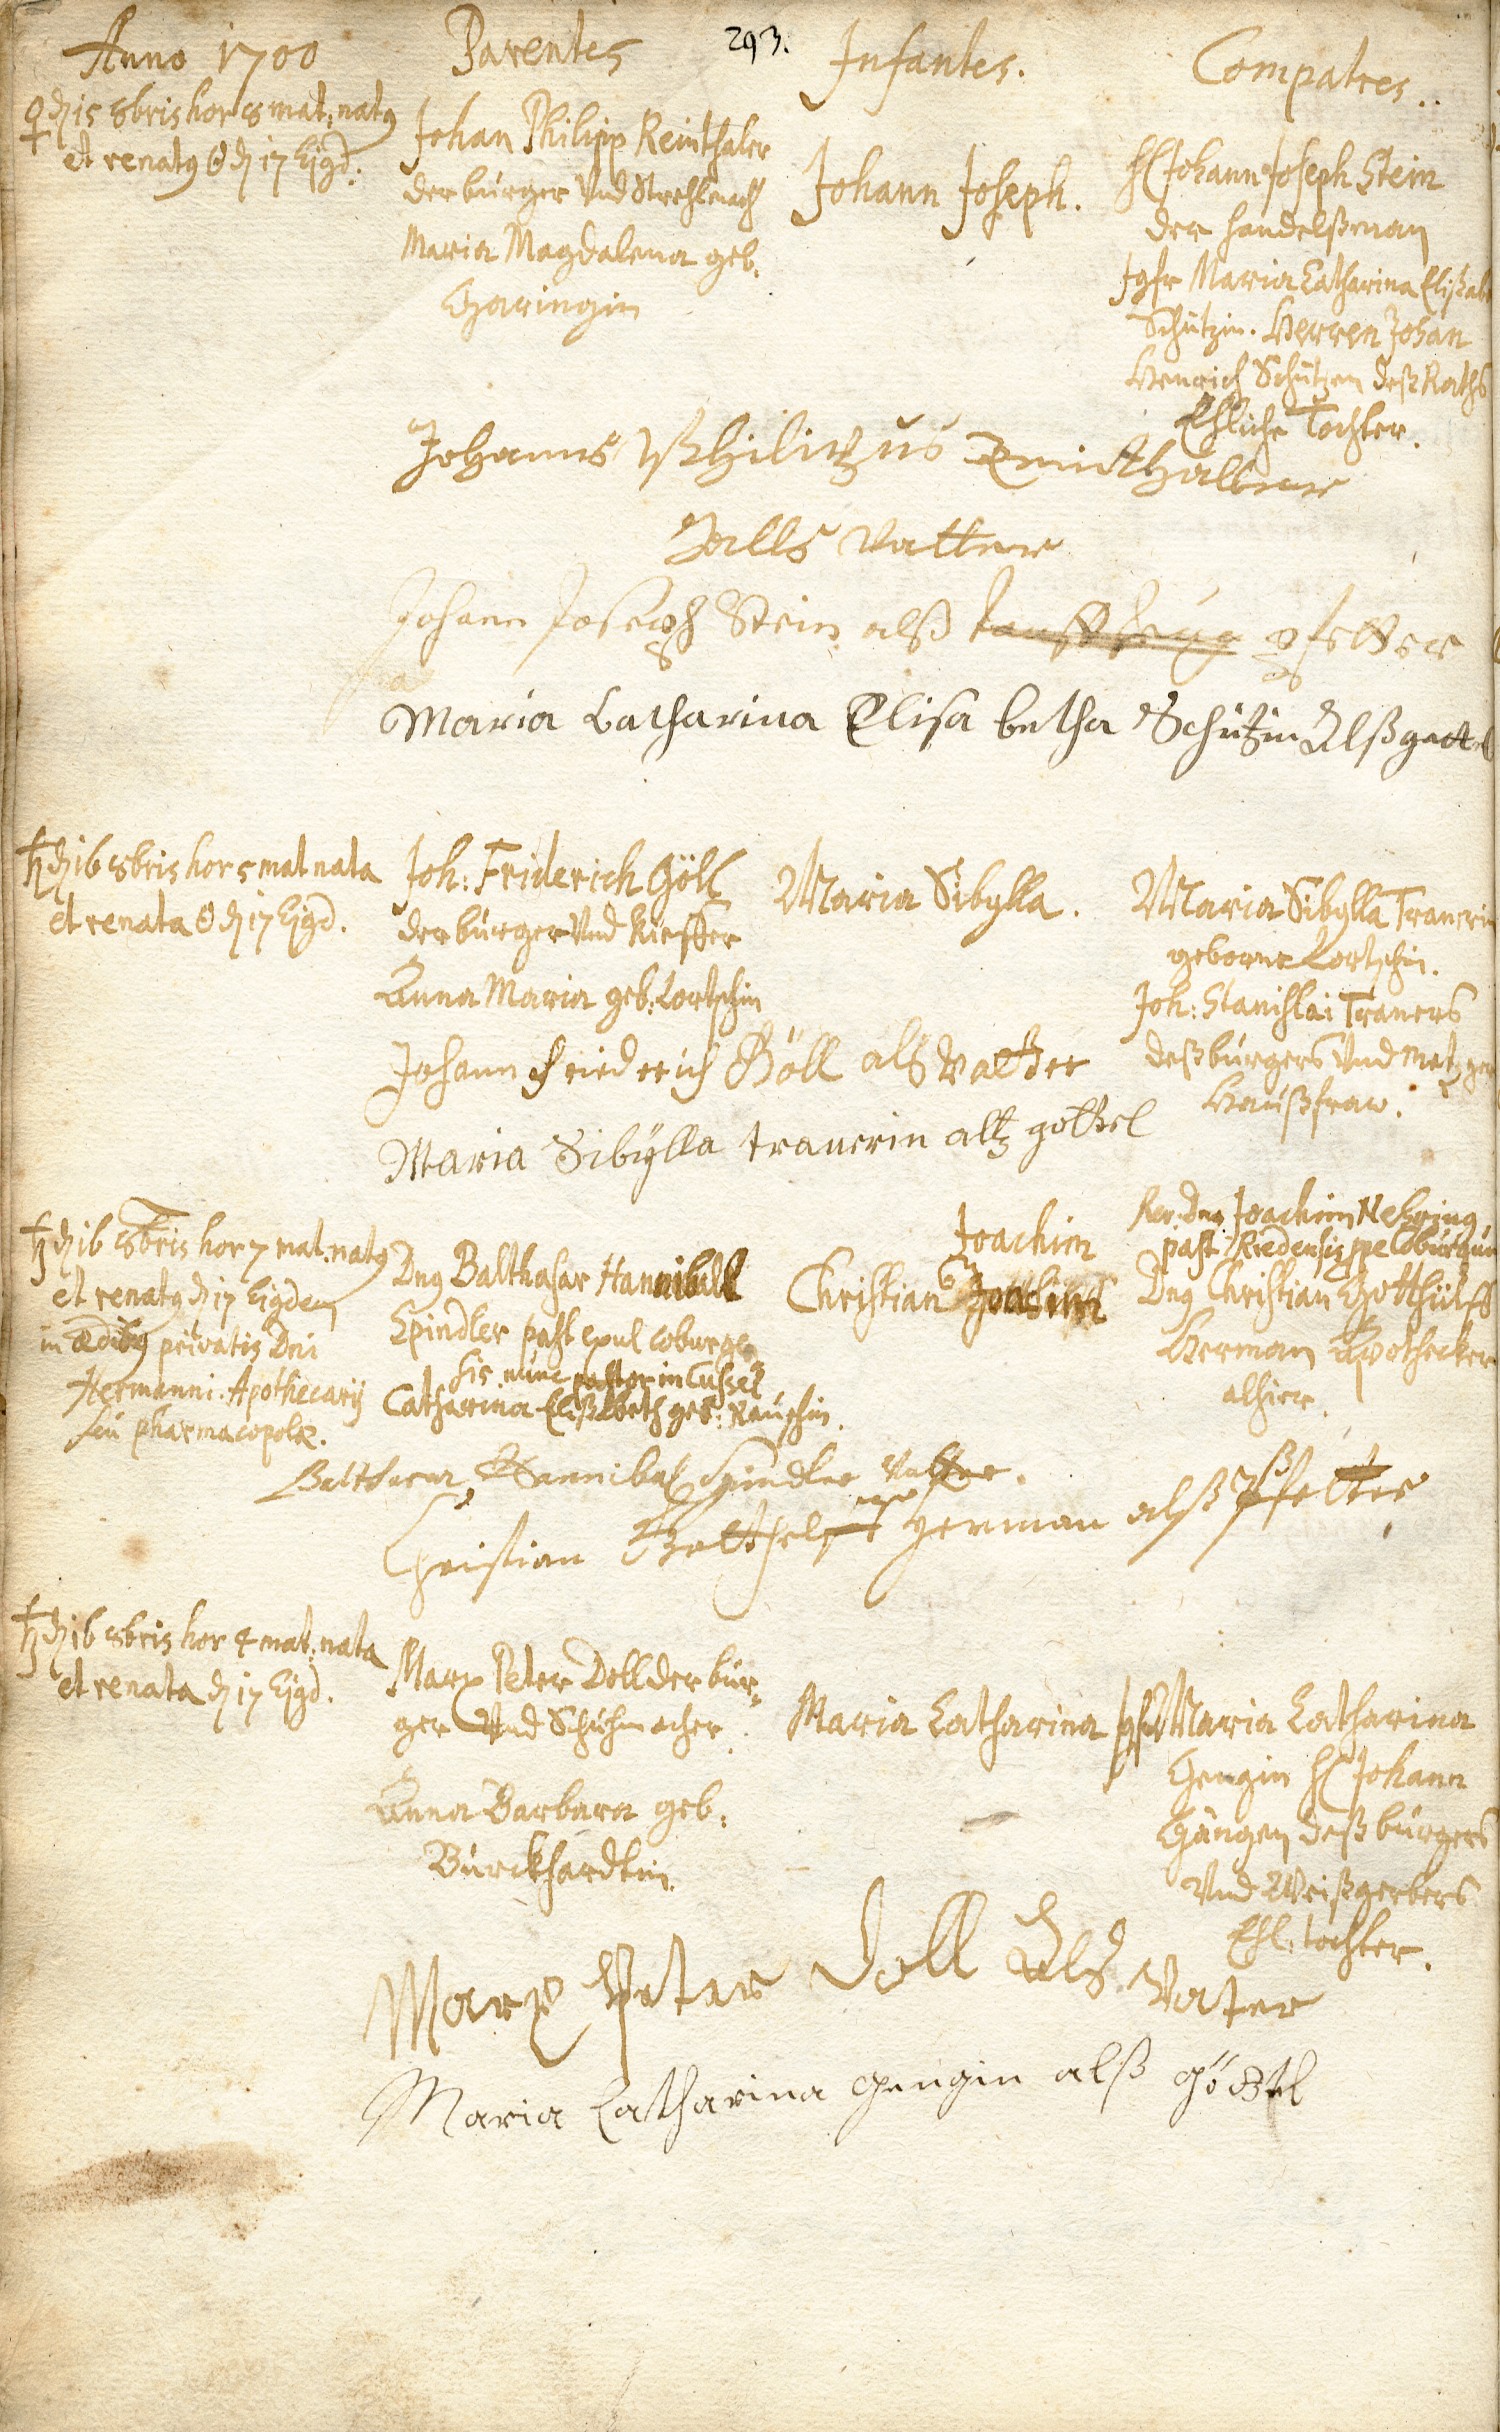 293.
Anno 1700
Parentes
Infantes.
Compatres..
♀ d 15 8bris hor 8 mat: nat9
et renat9 ☉ d 17 Ejsd:
Johan Philipp Reinthaler
der bürger Vnd Strehlmach
Maria Magdalena geb.
Haringin
Johann Joseph.
H Johann Joseph Stein
der handelßman
Jgfr Maria Catharina Elisab
Schützin. Herren Johan
Henrich Schützen deß Raths
Ehliche Tochter.
Johanns Philippus Reinthaller
Jalls Vatter
Johann Joseph Stein alß tauffzeug pfetter
Maria Catharina Elisa betha Schützin Alß gettel
♄ d 16 8bris hor 5 mat nata
et renata ☉ d 17 Ejsd.
Joh: Friderich Göll
der bürger Vnd Kieffer
Anna Maria geb: Lortschin
Maria Sibylla.
Maria Sibylla Tranerin
geborne Lortschin.
Joh: Stanislai Traners
deß bürgers Vnd Metzger
Haußfraw.
Johann friederich Göll alß Vatter
Maria Sibÿlla tranerin altz gottel
♄ d 16 8bris hor 7 mat: nat9
et renat9 d 17 Eijsdem
in ædib9 privatis Dni
Hermanni Apothecarij
seu pharmacopolæ.
Dn9 Balthasar Hannibal
Spindler past exul coburgen
sis nunc pastor in Cussel
Catharina Elisabeth geb: Rauschin.
Joachim
Christian
Rev: Dn9 Joachim Nehring,
past. Riedensis ppe Coburgum
Dn9 Christian Gotthülff
Herman Apothecker
alhier.
Balthasar Hannibal Spindler Vatter.
Christian Gotthelff Herman alß Pfetter
♄ d 16 8bris hor 4 mat: nata
et renata d 17 Ejsd.
Marx Peter Doll der bür-
ger Vnd Schuhmacher.
Anna Barbara geb:
Bürckhardtin.
Maria Catharina
Jgfr Maria Catharina
Gengin H Johann
Gängen deß bürgers
Vnd Weißgerbers
Ehl: tochter.
Marx Peter Doll Als Vater
Maria Catharina gengin alß göttel